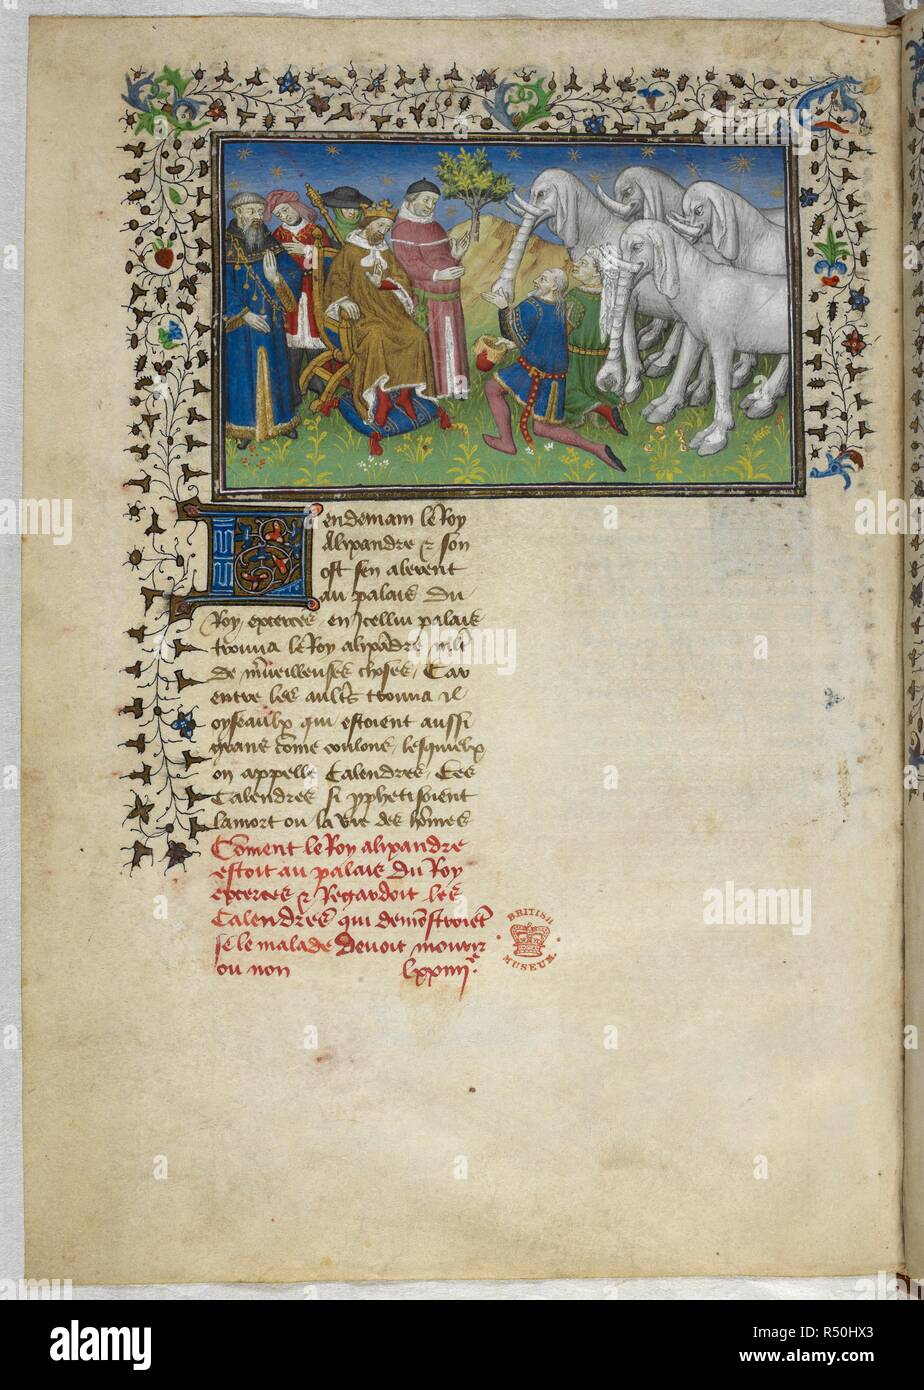 Lendemain le Roy
Alixandre & son
ost sen alerent
au palais du
Roy excerces. en Icellui palais
trouua le Roy alixãdre mlt
de m̃ueilleuses choses. Car
entre les aultr̃s trouua il
oyseaulx qui estoient aussi
grans cõme coulons. lesquielx
on appelle Calendres. Ces
Calendres si p̃phetisoient
la mort ou la vie des hõmes
Cõment le Roy alixandre
estoit au palais du Roy
excerces & Regardoit les
Calendres qui demõstroiẽt
se le malade deuoit mourir
ou non lxxiiii
BRITISH
MUSEUM
alamy
Image ID: R50HX3
www.alamy.com